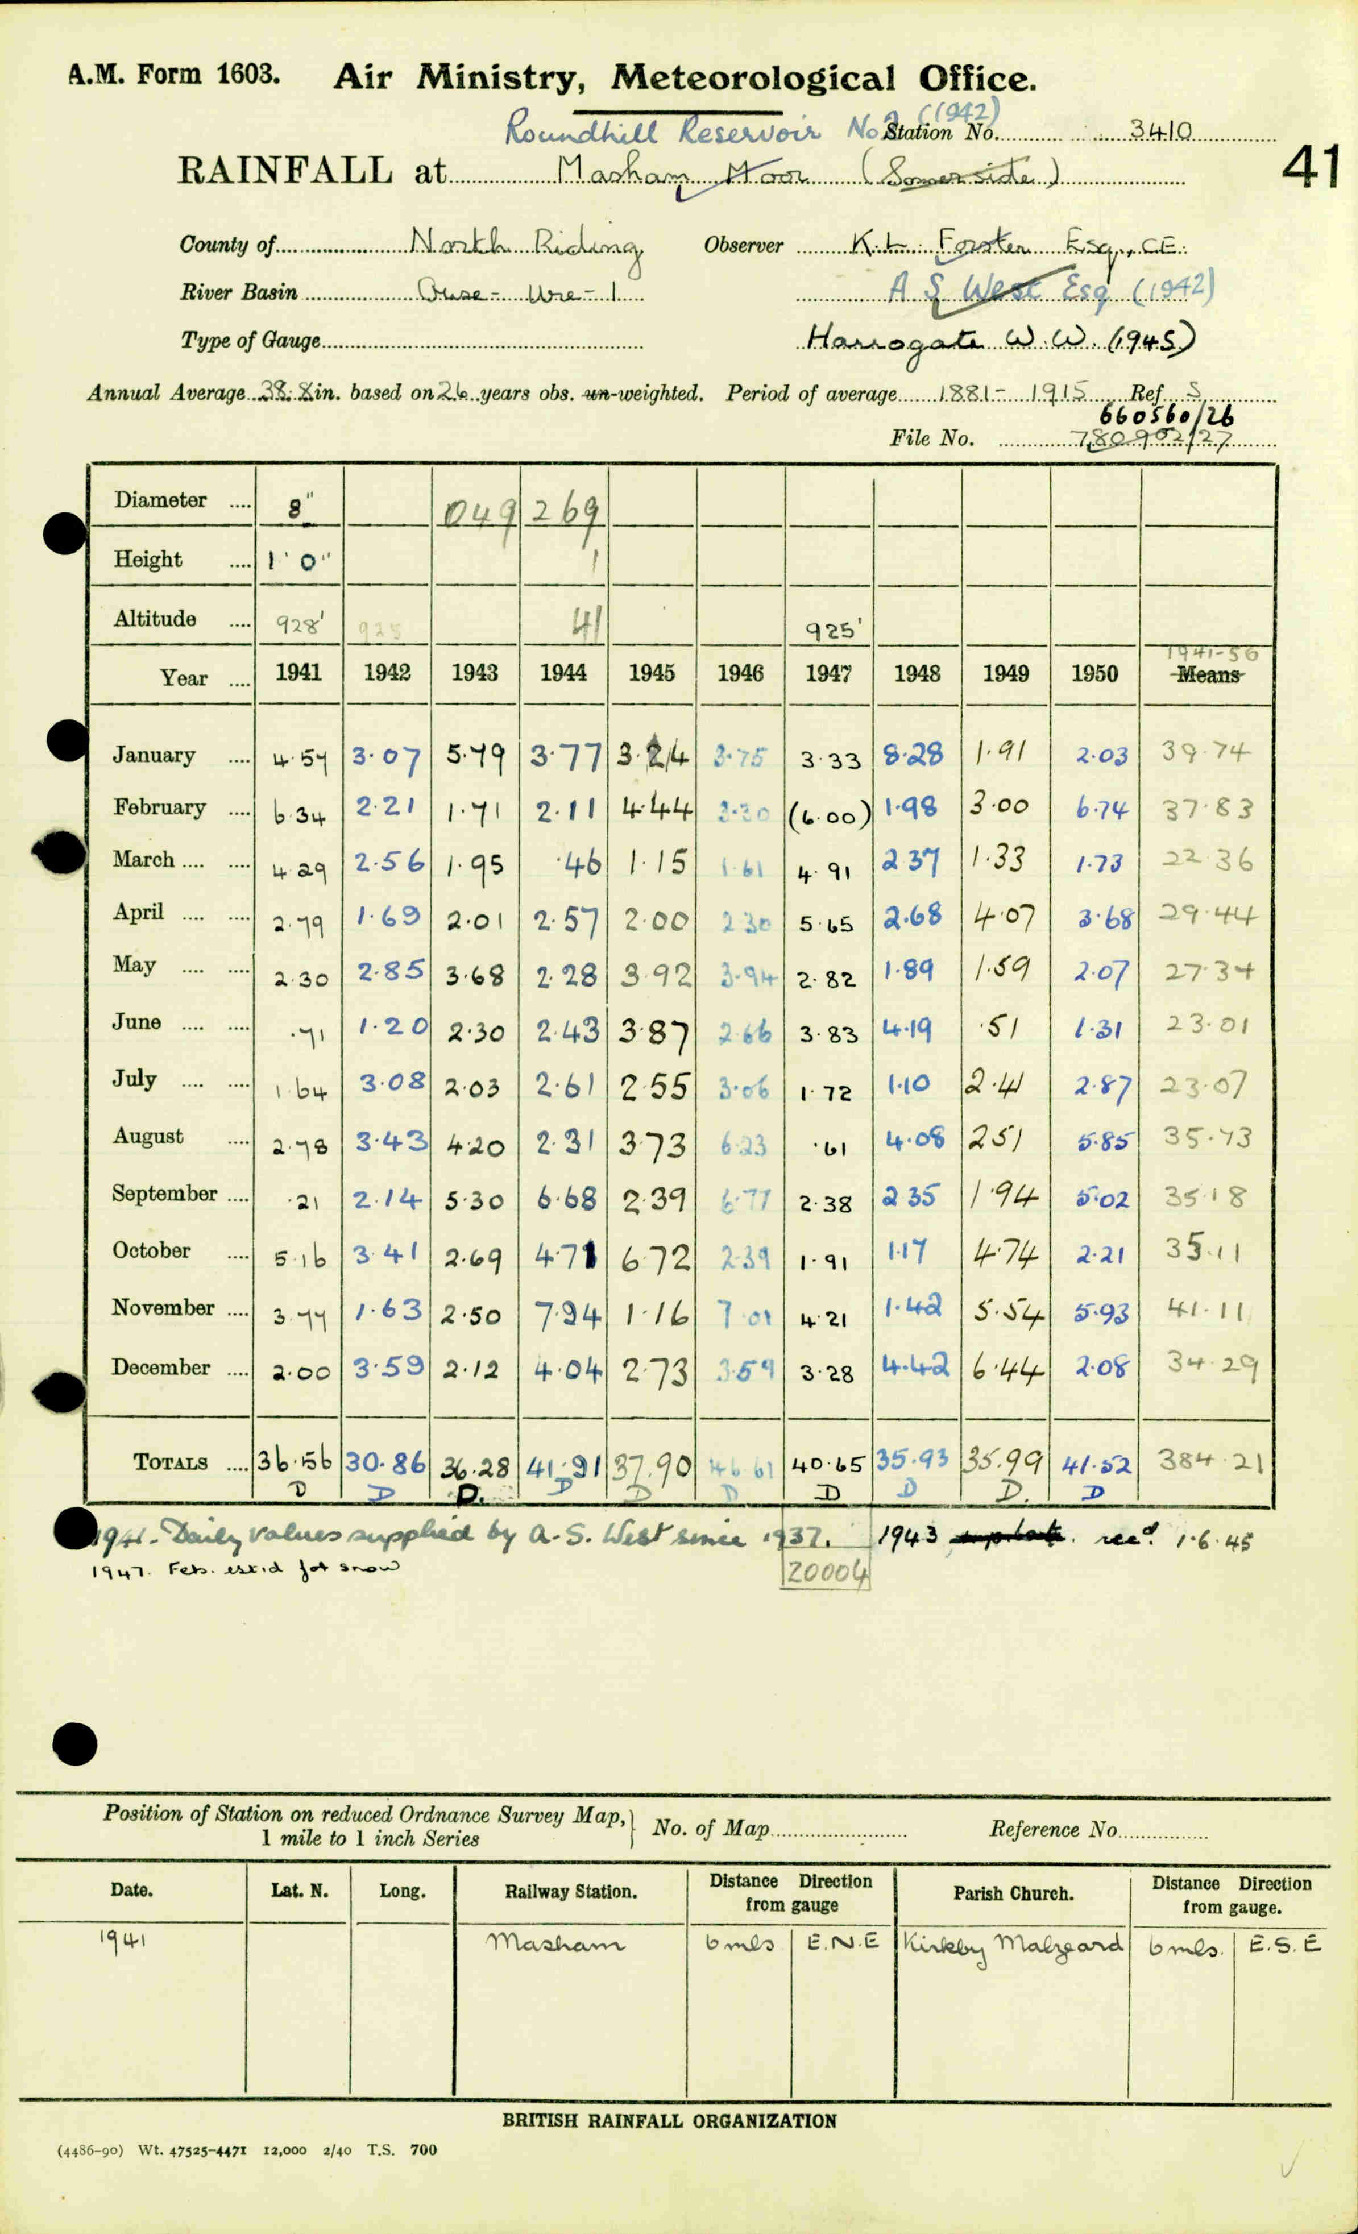 A.M. Form 1603. Air Ministry, Meteorological Office.
Roundhill Reservoir No 2 (1942)
Station No. 3410
RAINFALL at Masham Moor (Somerside)
41
County of North Riding Observer K.L. Forster Esq., C.E.
River Basin Ouse - Ure - 1 A S West Esq (1942)
Type of Gauge Harrogate W.W. (1945)
Annual Average 38.8 in. based on 26 years obs. un-weighted. Period of average 1881 - 1915 Ref. S
660560/26
File No. 780902/27
Diameter .... 8" 049 269
Height .... 1' 0" 1
Altitude .... 928' 925 41 925'
1941-50
Year .... 1941 1942 1943 1944 1945 1946 1947 1948 1949 1950 Means
January .... 4.57 3.07 5.79 3.77 3.24 3.75 3.33 8.28 1.91 2.03 39.74
February .... 6.34 2.21 1.71 2.11 4.44 3.30 (6.00) 1.98 3.00 6.74 37.83
March .... .... 4.29 2.56 1.95 .46 1.15 1.61 4.91 2.37 1.33 1.73 22.36
April .... .... 2.79 1.69 2.01 2.57 2.00 2.30 5.65 2.68 4.07 3.68 29.44
May .... .... 2.30 2.85 3.68 2.28 3.92 3.94 2.82 1.89 1.59 2.07 27.34
June .... .... .71 1.20 2.30 2.43 3.87 2.66 3.83 4.19 .51 1.31 23.01
July .... .... 1.64 3.08 2.03 2.61 2.55 3.06 1.72 1.10 2.41 2.87 23.07
August .... 2.78 3.43 4.20 2.31 3.73 6.23 .61 4.08 2.51 5.85 35.73
September .... .21 2.14 5.30 6.68 2.39 6.77 2.38 2.35 1.94 5.02 35.18
October .... 5.16 3.41 2.69 4.71 6.72 2.39 1.91 1.17 4.74 2.21 35.11
November .... 3.77 1.63 2.50 7.94 1.16 7.01 4.21 1.42 5.54 5.93 41.11
December .... 2.00 3.59 2.12 4.04 2.73 3.59 3.28 4.42 6.44 2.08 34.29
TOTALS .... 36.56 30.86 36.28 41.91 37.90 46.61 40.65 35.93 35.99 41.52 384.21
D D D. D D D D D D. D
1941. Daily values supplied by A.S. West since 1937. 1943 rec.d 1.6.45
1947. Feb. est'd for snow 20004
Position of Station on reduced Ordnance Survey Map, } No. of Map Reference No.
1 mile to 1 inch Series
Date. Lat. N. Long. Railway Station. Distance Direction from gauge Parish Church. Distance Direction from gauge.
1941 Masham 6 mls E.N.E Kirkby Malzeard 6 mls. E.S.E
BRITISH RAINFALL ORGANIZATION
(4486-90) Wt. 47525-4471 12,000 2/40 T.S. 700